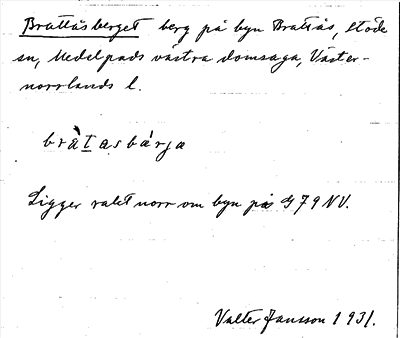 Brattåsberget berg på byn Brattås, Stöde
sn, Medelpads västra domsaga, Väster-
norrlands l.
bràtasbárja
Ligger rakt norr om byn på G 79 NV.
Valter Jansson 1931.